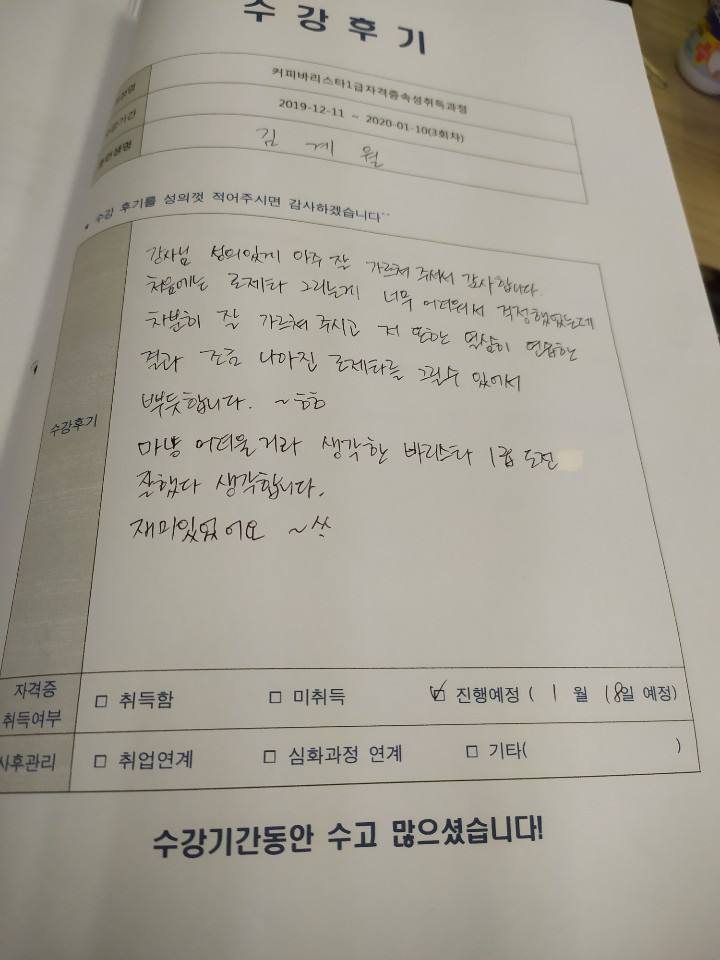 수 강 후 기
커피바리스타1급자격증속성취득과정
기간
2019-12-11 ~ 2020-01-10(3회차)
훈련생명
김 계 월
* 수강 후기를 성의껏 적어주시면 감사하겠습니다^^
강사님 성의있게 아주 잘 가르쳐 주셔서 감사합니다.
처음에는 로제타 그리는게 너무 어려워서 걱정했었는데
차분히 잘 가르쳐 주시고 저 또한 열심히 연습한
결과 조금 나아진 로제타를 그릴수 있어서
뿌듯합니다. ~ㅎㅎ
수강후기
마냥 어려울거라 생각한 바리스타 1급 도전
잘했다 생각합니다.
재미있었어요 ~^^
자격증
취득여부
□ 취득함 □ 미취득 ☑ 진행예정 ( 1 월 (8일 예정)
사후관리 □ 취업연계 □ 심화과정 연계 □ 기타( )
수강기간동안 수고 많으셨습니다!